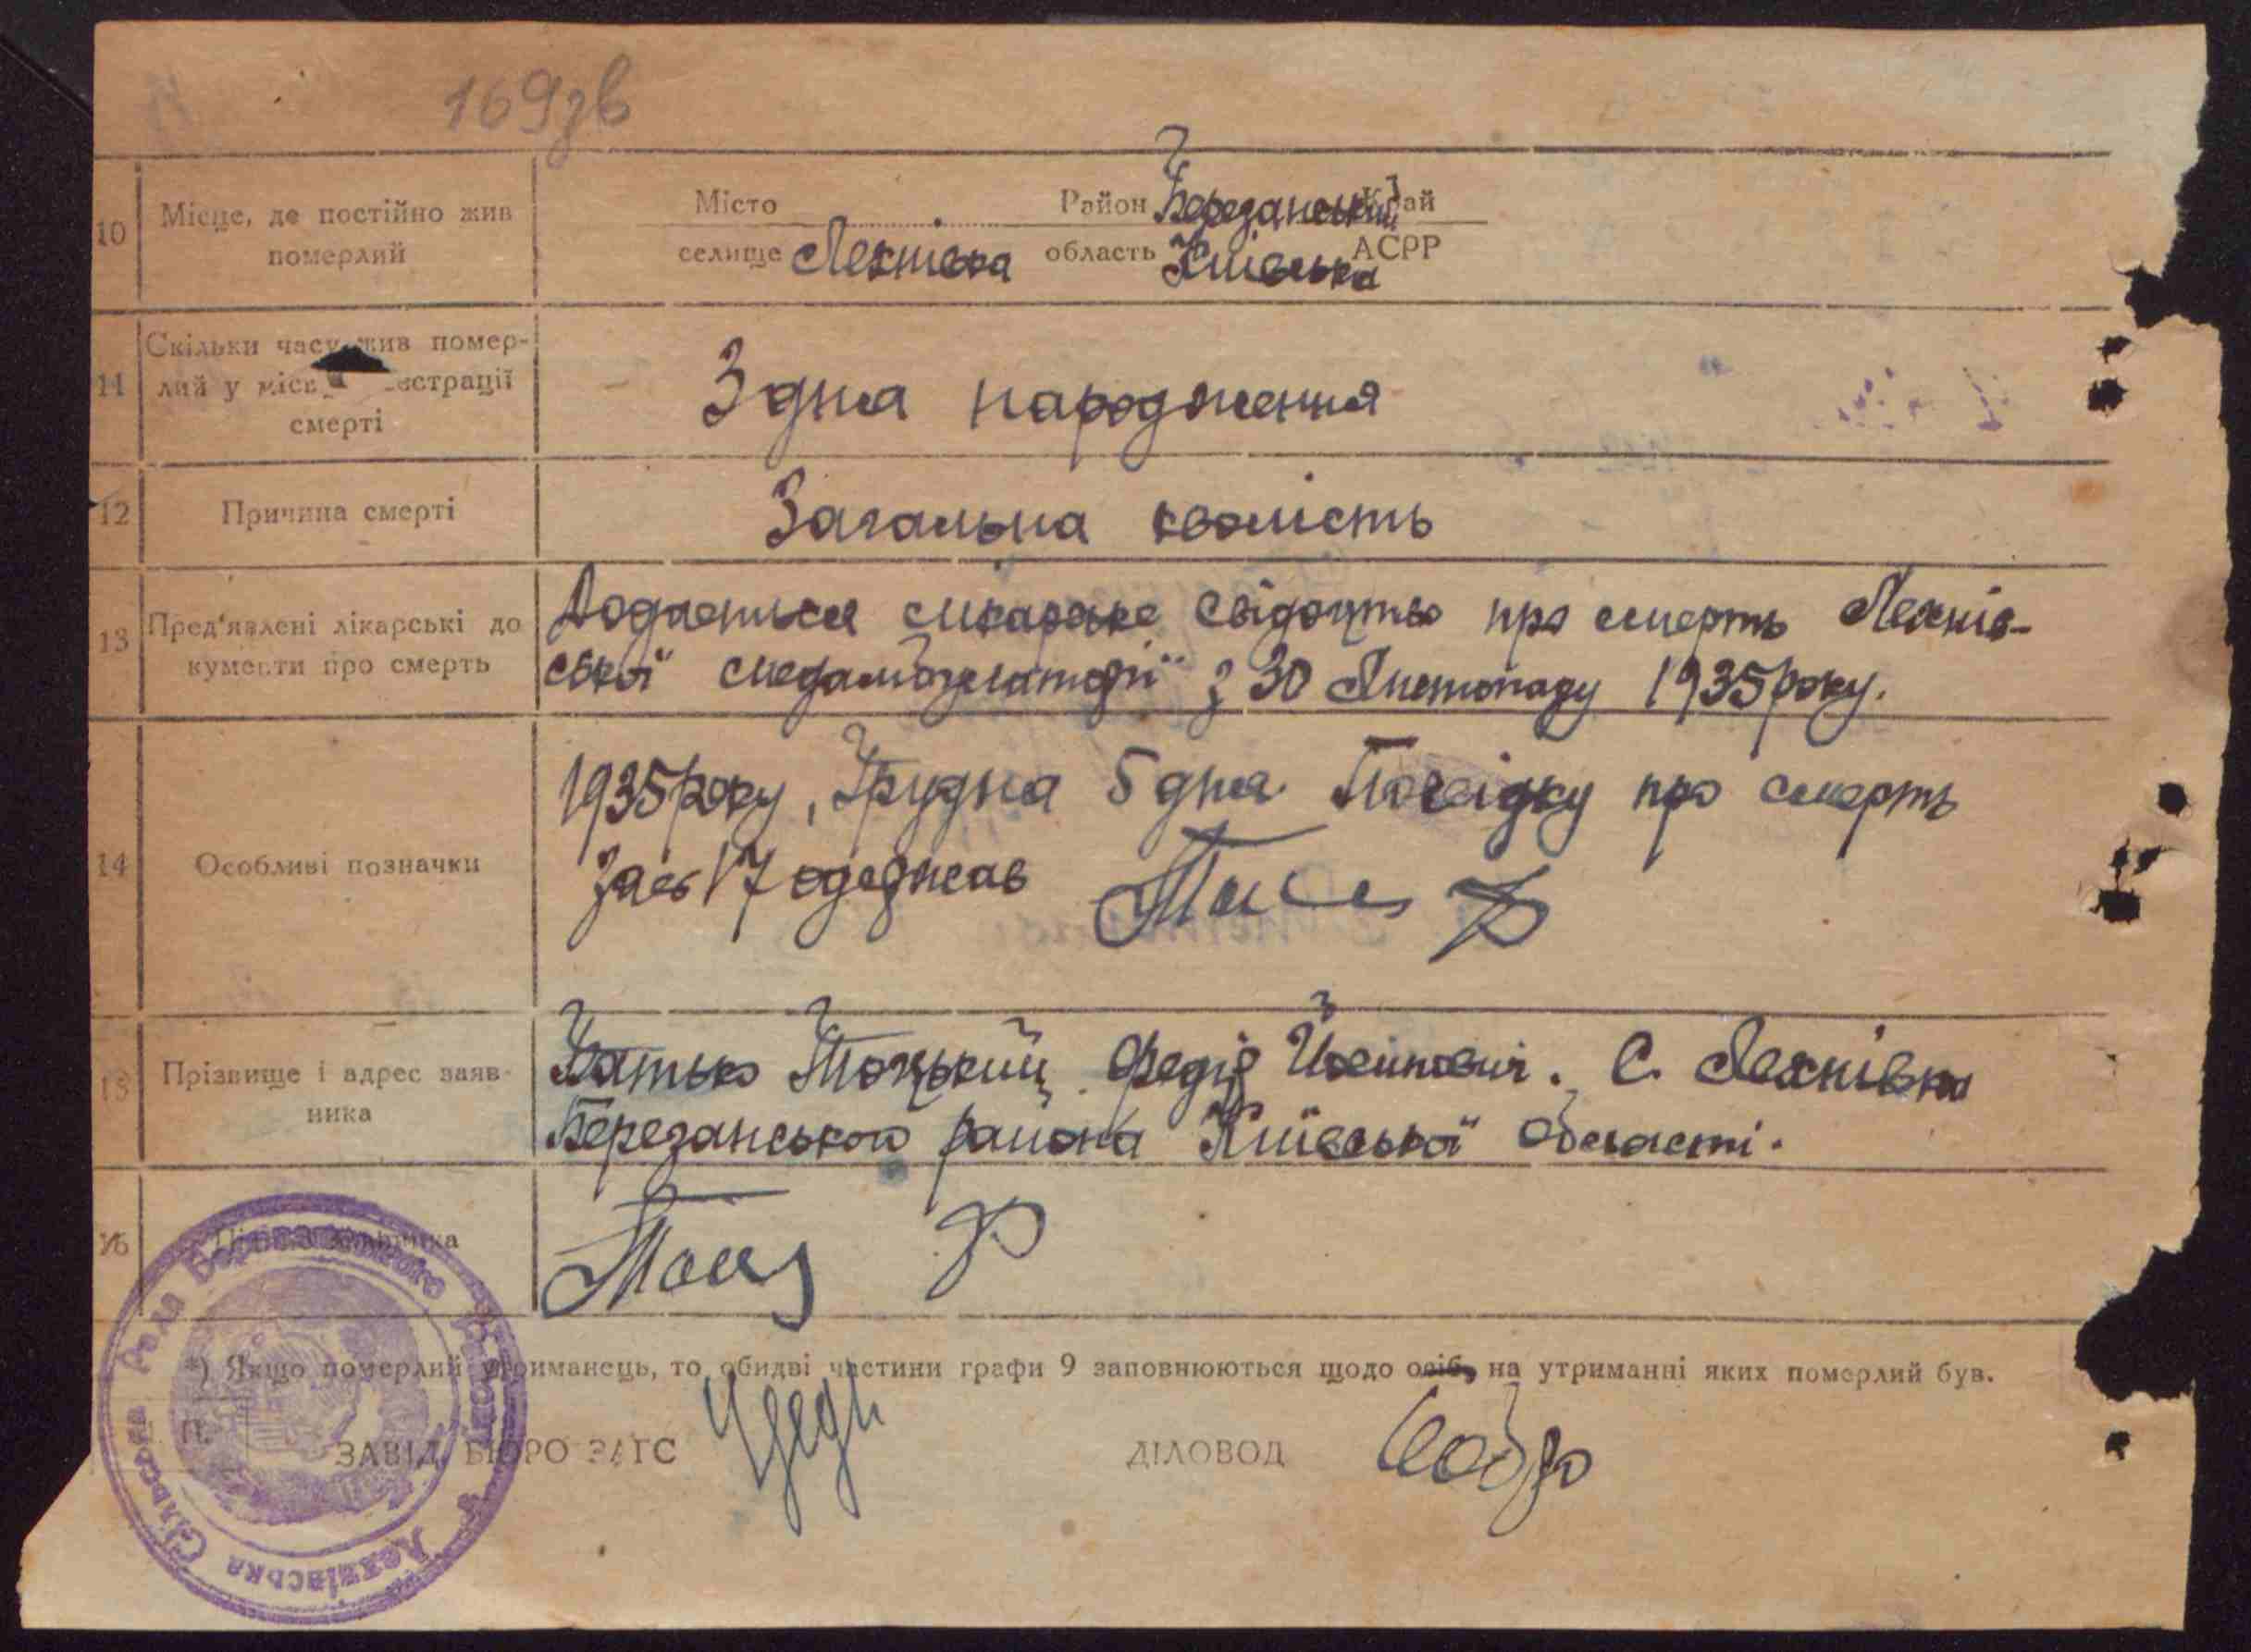 169зв
10 Місце, де постійно жив померлий
Місто Район Березанський Край
селище Лехнівка область Київська АСРР
11 Скільки часу жив помер-
лий у місц еєстрації
смерті
З дня народження
12 Причина смерті
Загальна кволість
13 Пред'явлені лікарські до
кументи про смерть
Додається лікарське свідоцтво про смерть Лехнів-
ської медамбулаторії з 30 Листопаду 1935 року.
14 Особливі позначки
1935 року, Грудня 5 дня. Посвідку про смерть
за № 17 одержав
15 Прізвище і адрес заяв-
ника
Батько Тоцький Федір Йосипович. С. Лехнівка
Березанського района Київської области.
16 Підпис заявника
Тоц Ф
*) Якщо померлий утриманець, то обидві частини графи 9 заповнюються щодо осіб, на утриманні яких померлий був.
П.
ЗАВІД. БЮРО ЗАГС
ДІЛОВОД
Лехнівська Сільська Рада Березанського Району